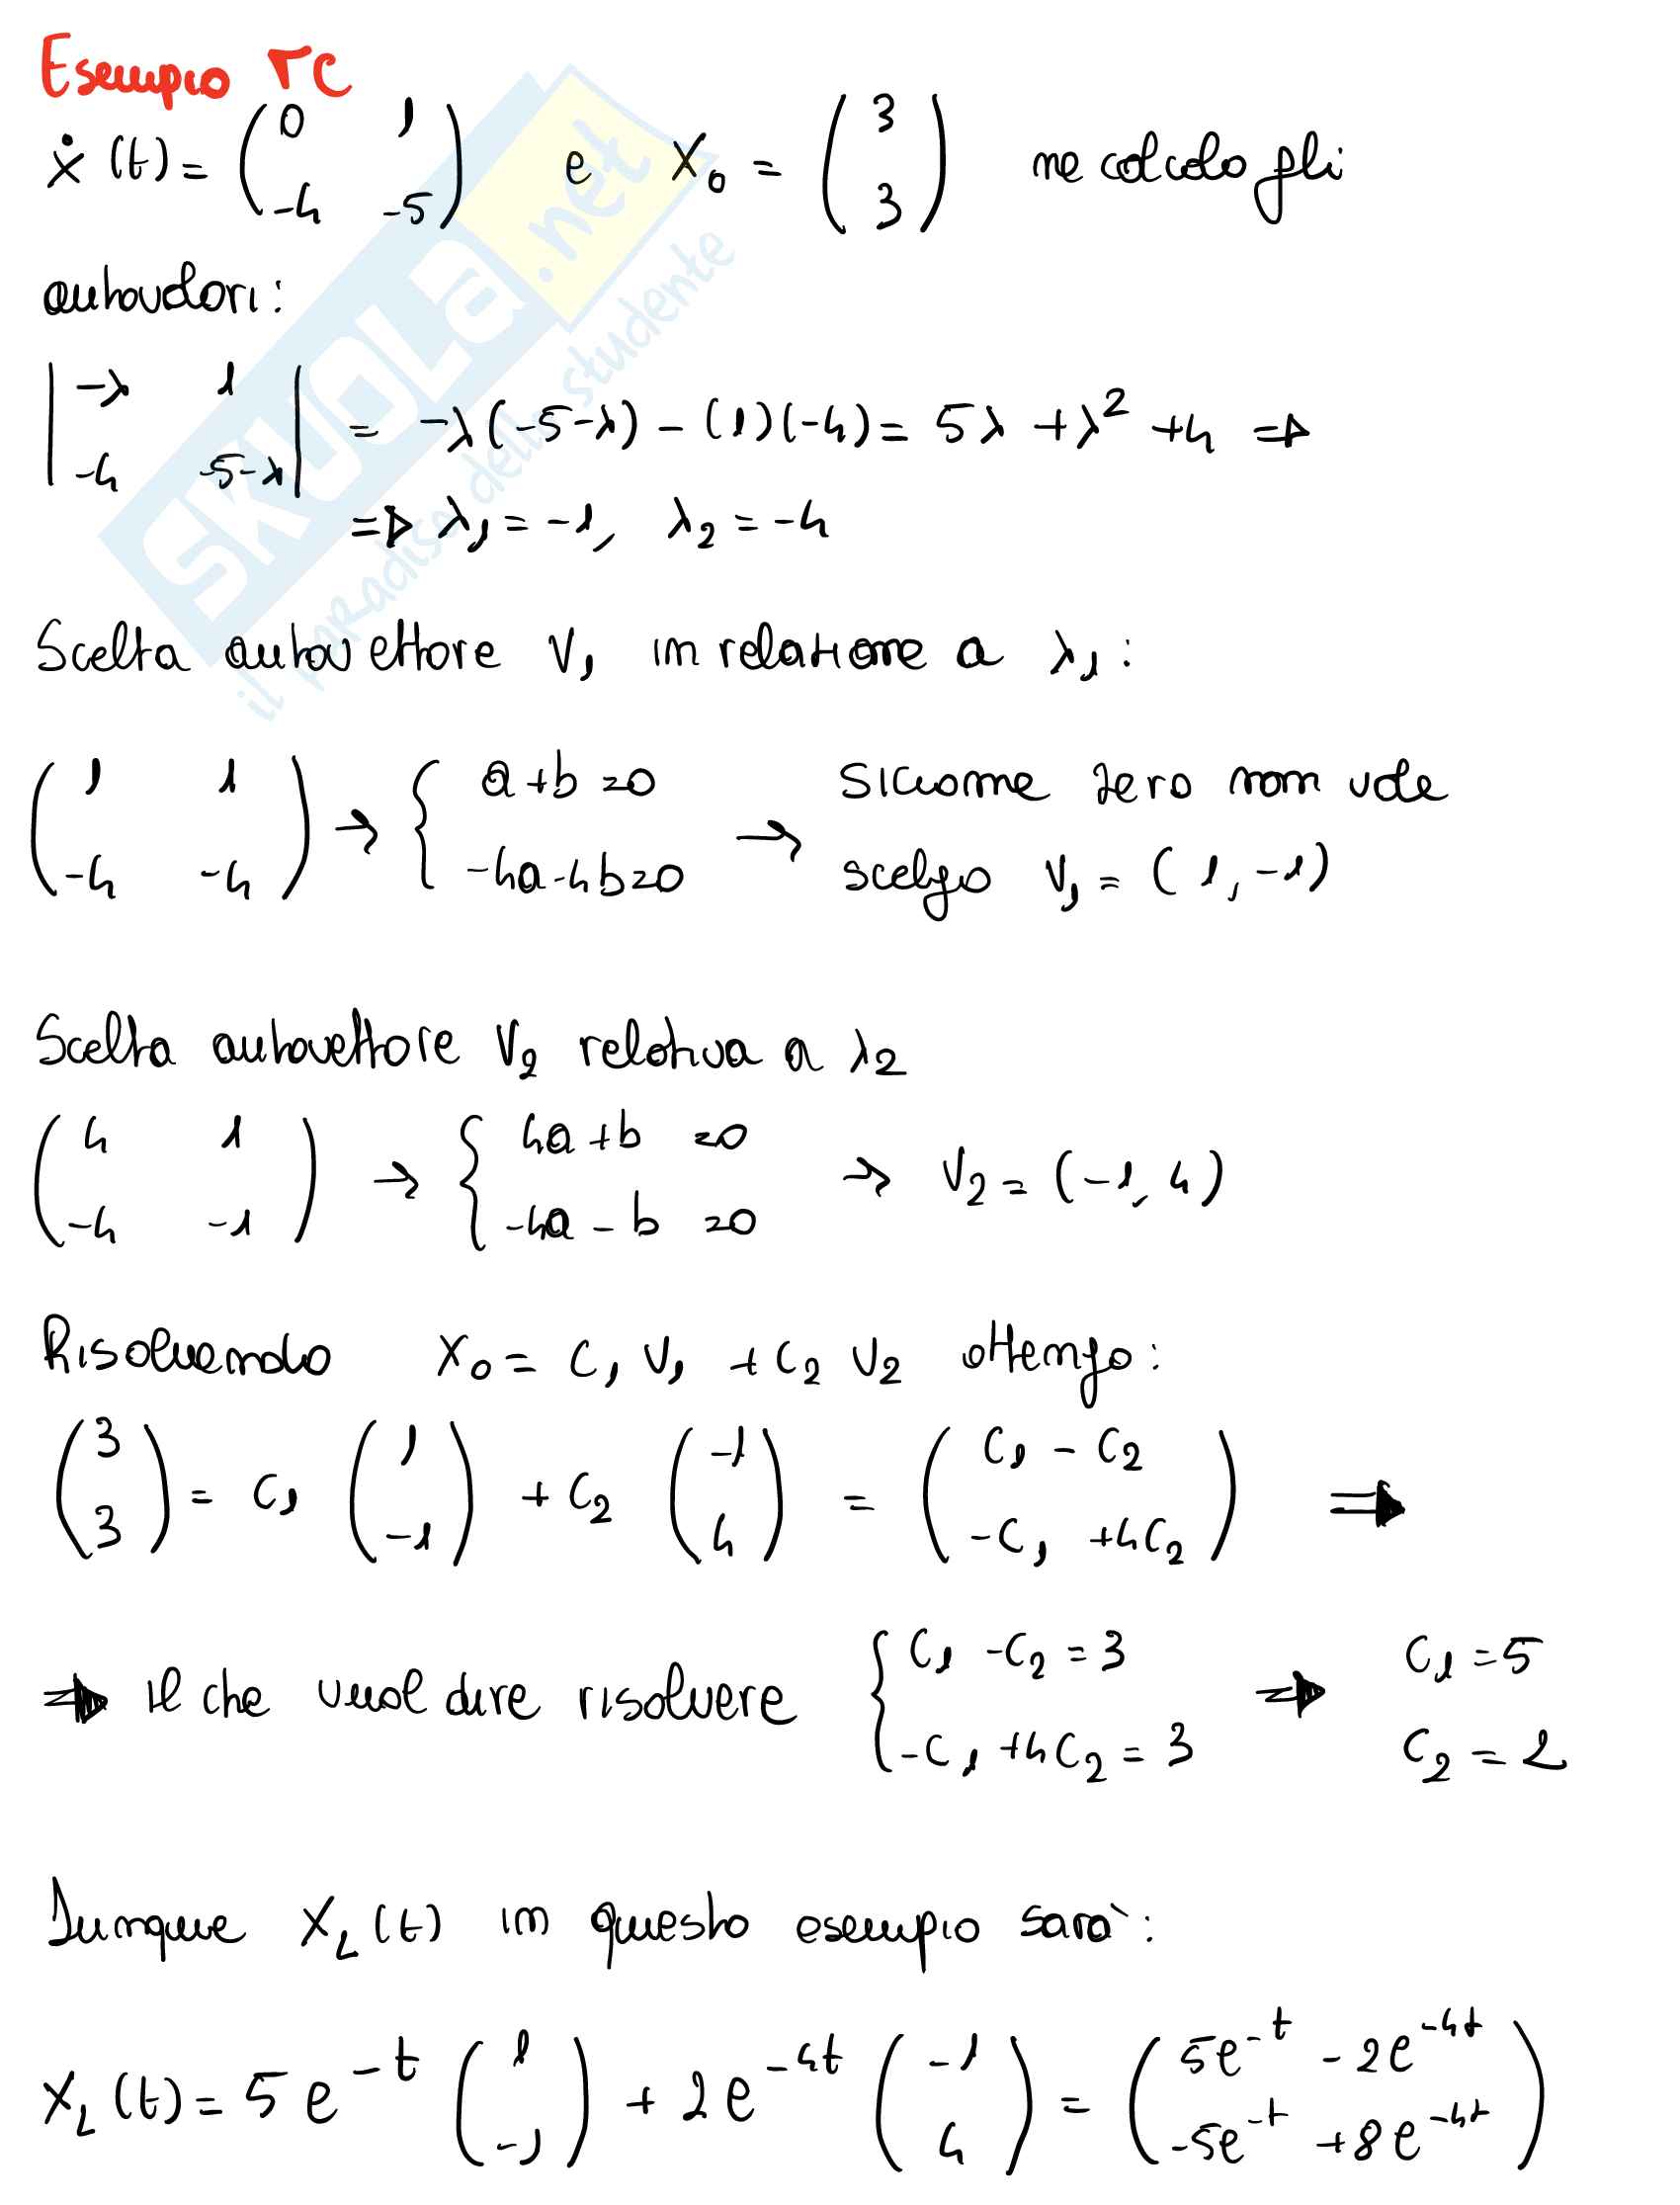 Esempio TC
ẋ(t) = ( 0 1 ; -4 -5 ) e x₀ = ( 3 ; 3 ) ne calcolo gli
autovalori:
| -λ 1 ; -4 -5-λ | = -λ(-5-λ) - (1)(-4) = 5λ + λ² + 4 ⇒
⇒ λ₁ = -1, λ₂ = -4
Scelta autovettore V₁ in relazione a λ₁:
( 1 1 ; -4 -4 ) → { a+b=0 ; -4a-4b=0 → siccome zero non vale
scelgo V₁ = (1, -1)
Scelta autovettore V₂ relativa a λ₂
( 4 1 ; -4 -1 ) → { 4a+b =0 ; -4a-b =0 → V₂ = (-1, 4)
Risolvendo x₀ = c₁ v₁ + c₂ v₂ ottengo:
( 3 ; 3 ) = c₁ ( 1 ; -1 ) + c₂ ( -1 ; 4 ) = ( c₁ - c₂ ; -c₁ + 4c₂ ) ⇒
⇒ il che vuol dire risolvere { c₁ - c₂ = 3 ; -c₁ + 4c₂ = 3 ⇒ c₁ = 5 ; c₂ = 2
Dunque x_L(t) in questo esempio sarà:
x_L(t) = 5e^-t ( 1 ; -1 ) + 2e^-4t ( -1 ; 4 ) = ( 5e^-t - 2e^-4t ; -5e^-t + 8e^-4t )
SKUOLa.net
il paradiso dello studente